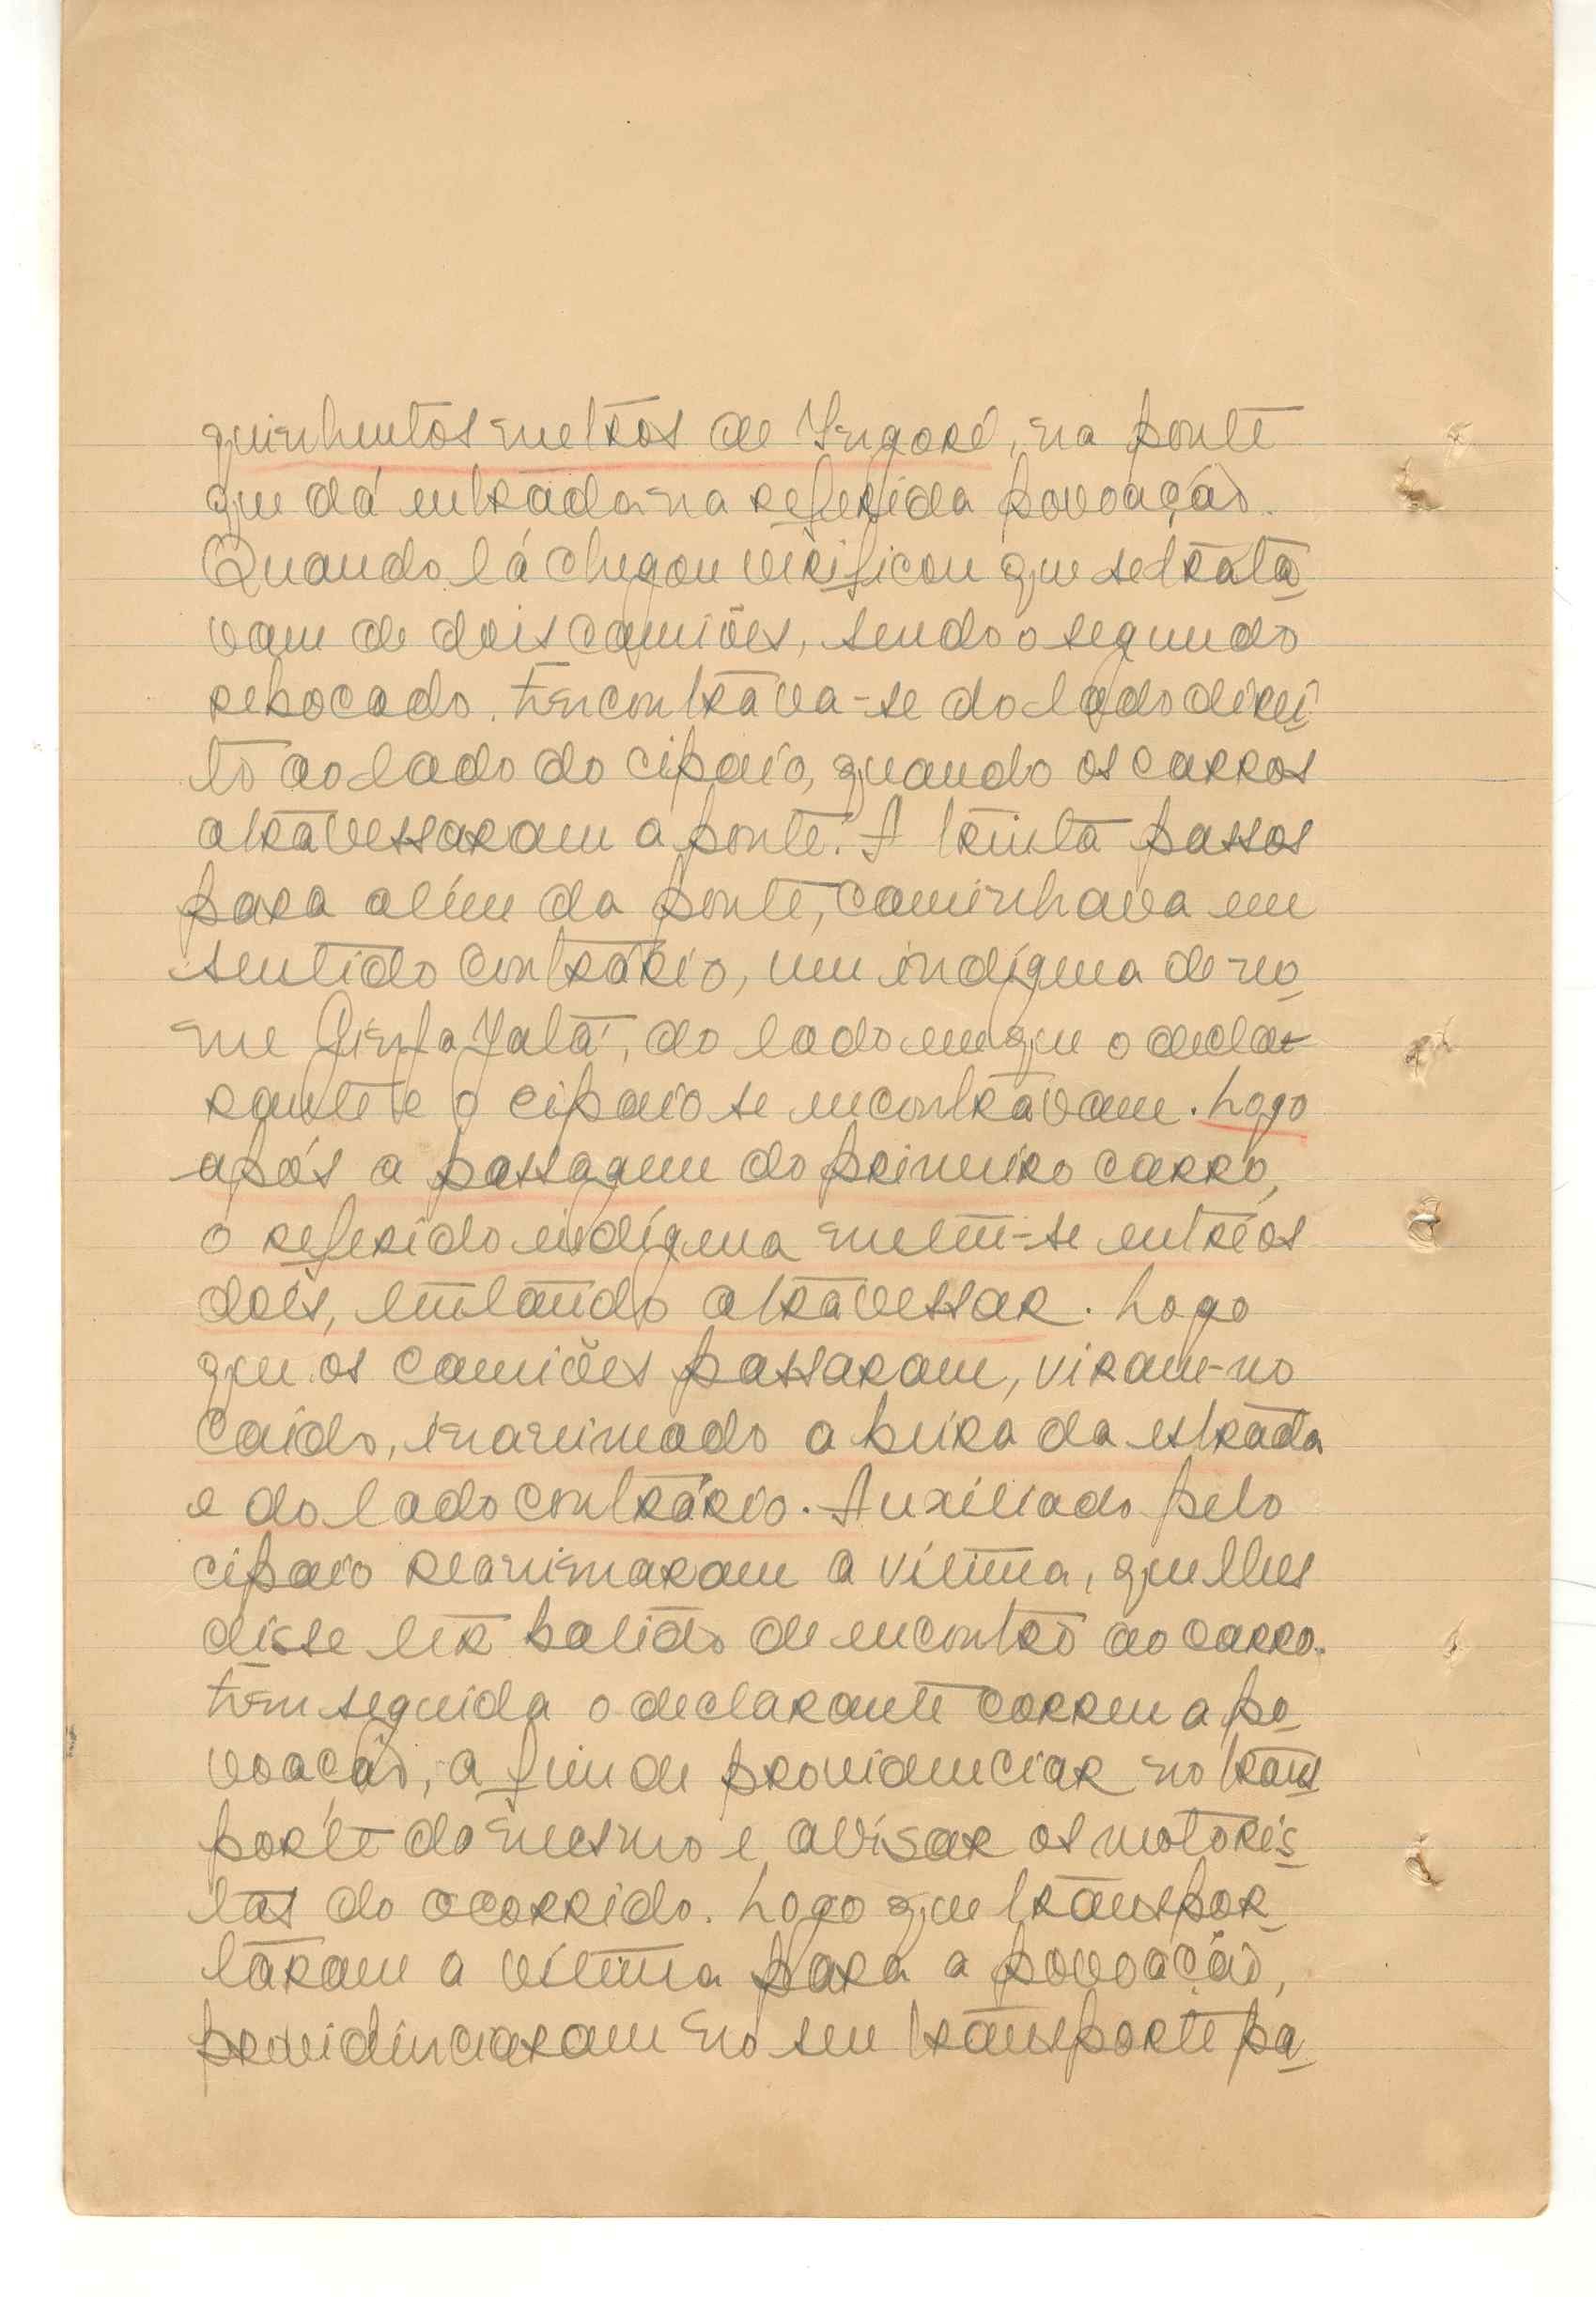 quinhentos metros de Ingoré, na ponte
que dá entrada na referida povoação.
Quando lá chegou verificou que se trata
vam de dois camiões, sendo o segundo
rebocado. Encontrava-se do lado direi
to ao lado do cipaio, quando os carros
atravessaram a ponte. A trinta passos
para além da ponte, caminhava em
sentido contrário, um indígena de no
me Jalá, do lado em que o decla-
rante e o cipaio se encontravam. Logo
após a passagem do primeiro carro,
o referido indígena meteu-se entre os
dois, tentando atravessar. Logo
que os camiões passaram, viram-no
caído, inanimado a beira da estrada
e do lado contrário. Auxiliado pelo
cipaio reanimaram a vítima, que lhes
disse ter batido de encontro ao carro.
Em seguida o declarante correu a po
voação, a fim de providenciar no trans
porte do mesmo e avisar os motoris
tas do ocorrido. Logo que transpor
taram a vítima para a povoação,
providenciaram no seu transporte pa